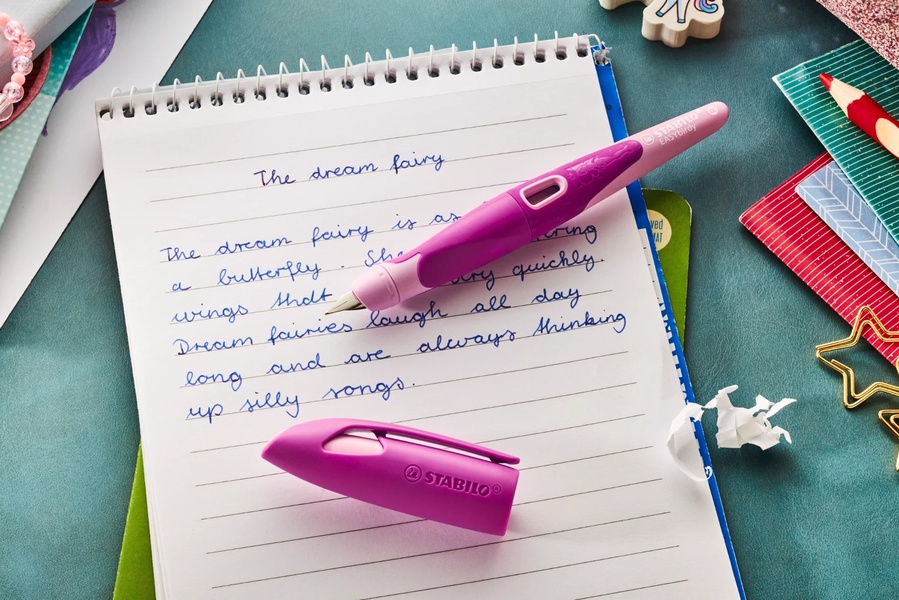 The dream fairy
The dream fairy is as
a butterfly. She
wings that quickly.
Dream fairies laugh all day
long and are always thinking
up silly songs.
STABILO
EASYbirdy
STABILO